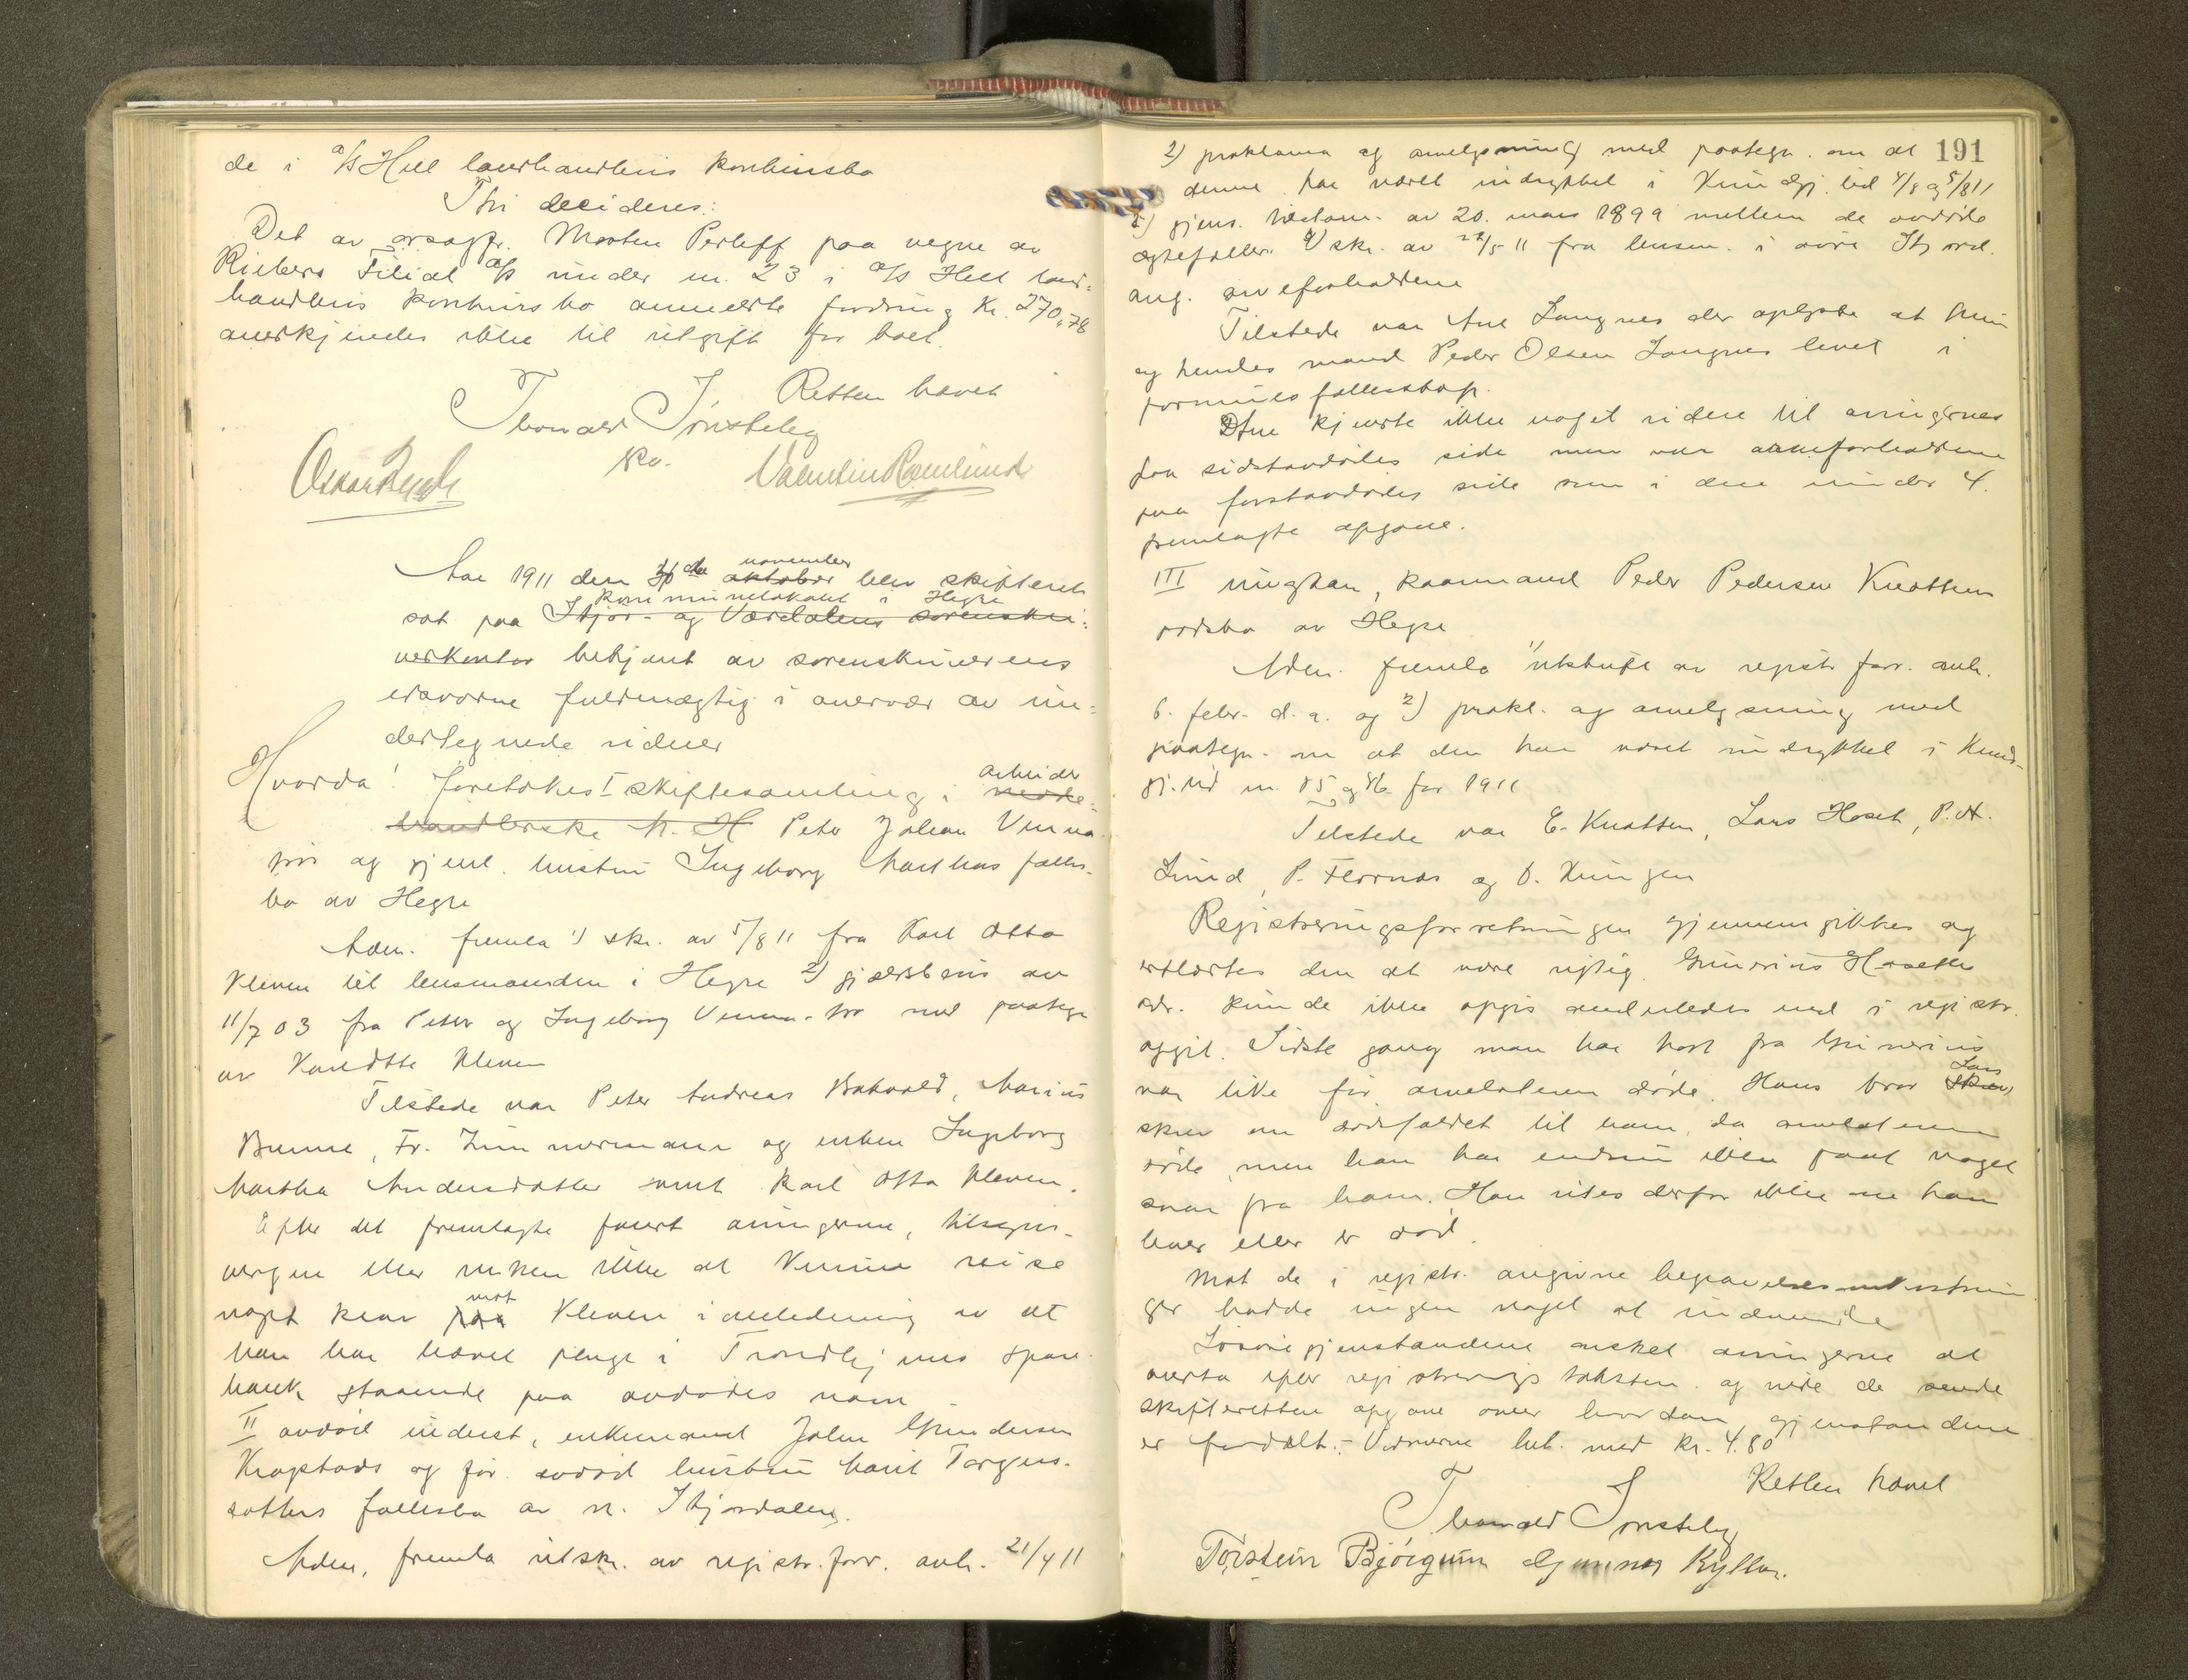 de i a/s Hell landhandleris konkursbo
Thi decideres:
Det av orsagfr. Morten Perleff paa vegne av
Riebers Filial a/s under nr. 23 i a/s Hell land-
handleris konkursbo anmeldte fordring kr. 270,78
anerkjendes ikke til utgift for boet.
Retten hævet
Thorvald
kv.
Valentin
Aar 1911 den 30 de november oktober blev skifteret
kommunelokalet i Hegre
sat paa Stjør- og Værdalens sorenskri-
verkontor betjent av sorenskriverens
edsvorne fuldmægtig i overvær av un-
dertegnede vidner
Hvorda! Foretokes I skiftesamling i arbeider
handlerske M. H Peter Johan
og gjenl. hustru Ingeborg Marthas fælles-
bo av Hegre
Adm. fremla 1) skr. av 5/8 11 fra Karl Otto
Kleven til lensmanden i Hegre 2) gjældsbevis av
11/7 03 fra Peter og Ingeborg med paategn
av Karl Otto Kleven
Tilstede var Peter Andreas Bakvold, Marius
Fr. Zimmermann og enken Ingeborg
Martha Andersdatter samt Karl Otto Kleven.
Efter det fremlagte fandt arvingerne, tilsyns-
vergen eller enken ikke at reise
noget krav paa mot Kleven i anledning av at
han har hævet penge i Trondhjems spare-
bank staaende paa avdødes navn
II avdød inderst, enkemand John Gundersen
Kropstads og før avdød hustru Marit Torgers-
datters fællesbo av n. Stjørdalen.
Adm, fremla utskr. av registr.forr. avh. 21/4 11
191
2) proklama og avvisning med paategn. om at
denne har været indrykket i Kundgj. tid 4/8 og 5/8 11
3) gjens. testam. av 20. mars 1899 mellem de avdøde
ægtefæller 4) skr. av 22/5 11 fra lensm. i øvre Stjørd.
ang. arveforholdene
Tilstede var Ane Langnes der oplyste at hun
og hendes mand Peder Olsen Langnes levet i
formuesfællesskap.
Ane kjendte ikke noget videre til arvingerne
paa sidstavdødes side men var arveforholdene
paa førstavdødes side som i den under 4.
fremlagte opgave.
III ungkar, kaarmand Peder Pedersen Knotten
dødsbo av Hegre
Adm. fremla 1) utskrift av registr forr. avh.
6. febr. d.a. og 2) prokl. og avvisning med
paategn. om at den har været indrykket i Kund-
gj. tid nr. 85 og 86 for 1911
Tilstede var E. Knotten, Lars Hoset, P. A.
Lund, P. Flornæs og O.
Registreringsforretningen gjennemgikkes og
erklærtes den at være rigtig. Gunerius Hosets
adr. kunde ikke opgis anderledes end i registr.
opgit. Sidste gang man har hørt fra Gunerius
var like før arvelateren døde. Hans bror Lars
skrev om dødsfaldet til ham, da arvelateren
døde, men han har endnu ikke faat noget
svar fra ham. Man vites derfor ikke om han
lever eller er død.
Mot de i registr. angivne begravelsesomkostnin-
ger hadde ingen noget at indvende
Løsøregjenstandene ønsket arvingerne at
overta efter registreringstaksten og vilde de sende
skifteretten opgave over hvordan gjenstandene
er fordelt. - Vidnerne bet. med kr. 4.80
Retten hævet
Thorvald
Torstein Bjørgum Gunnar Kyllo.